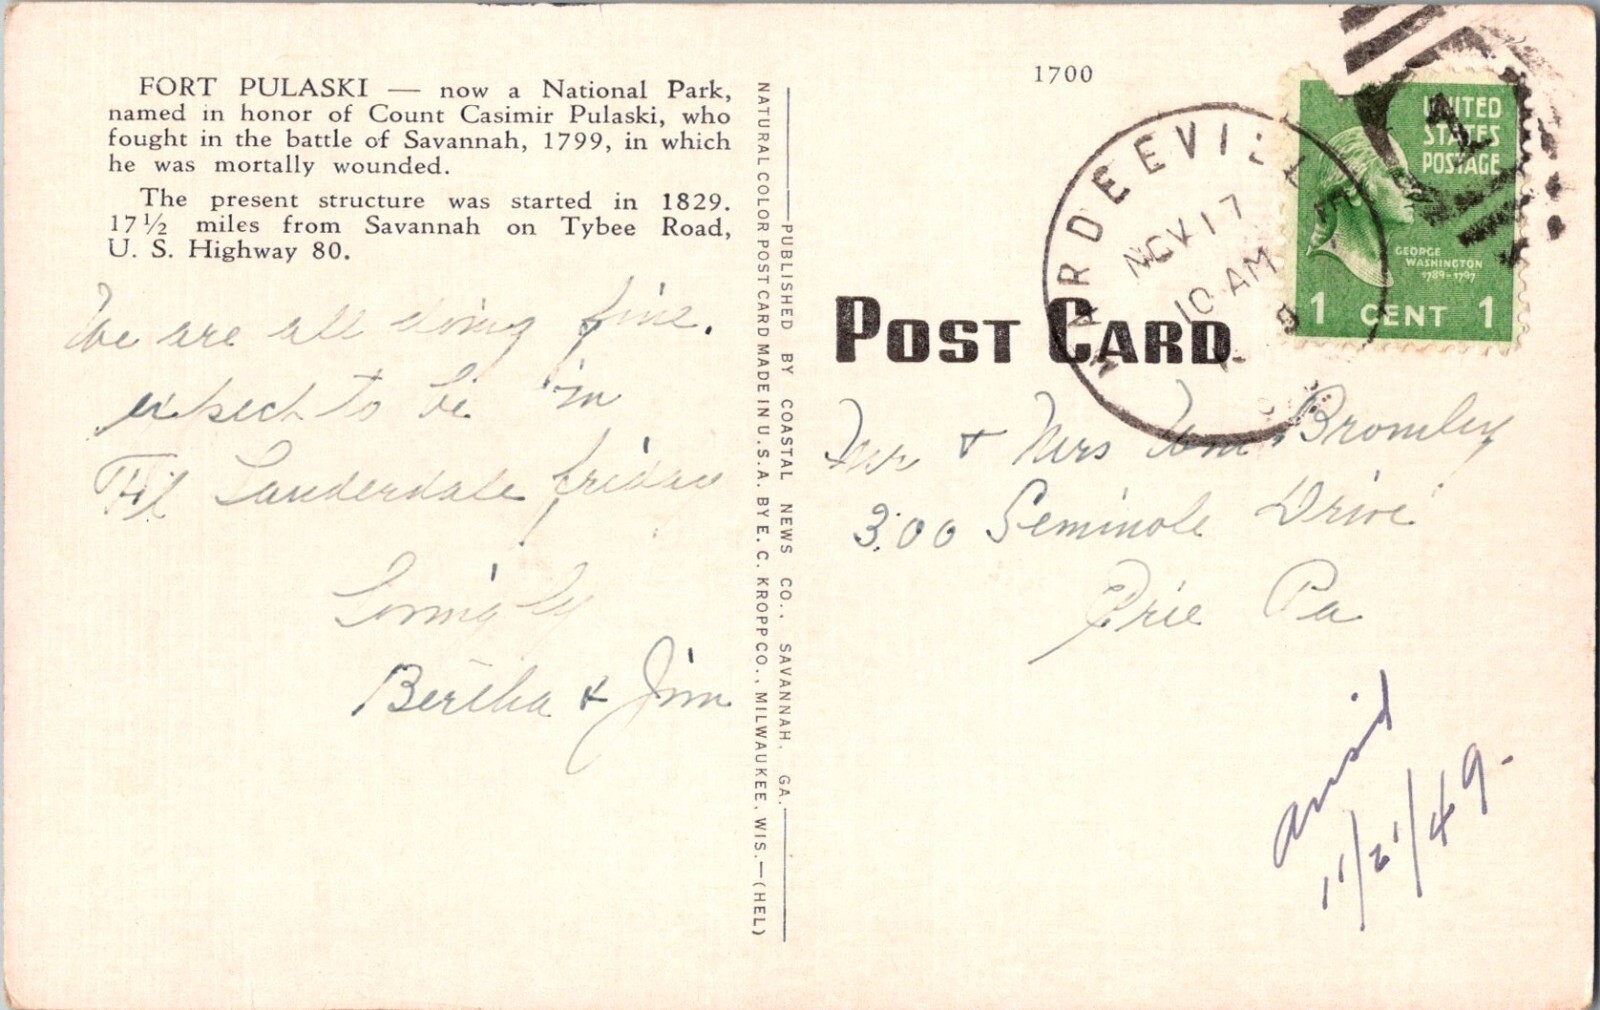 FORT PULASKI — now a National Park,
named in honor of Count Casimir Pulaski, who
fought in the battle of Savannah, 1799, in which
he was mortally wounded.
The present structure was started in 1829.
17½ miles from Savannah on Tybee Road,
U. S. Highway 80.
We are all doing fine.
expect to be in
Ft Lauderdale friday
Lovingly
Bertha & Jim
NATURAL COLOR POST CARD MADE IN U.S.A. BY E. C. KROPP CO., MILWAUKEE, WIS.—(HEL)
PUBLISHED BY COASTAL NEWS CO., SAVANNAH, GA.
1700
HARDEEVILLE
NOV 17
10 AM
UNITED
STATES
POSTAGE
GEORGE
WASHINGTON
1789-1797
1 CENT 1
POST CARD
Mr & Mrs Wm Bromley
300 Seminole Drive
Erie Pa
11/21/49.